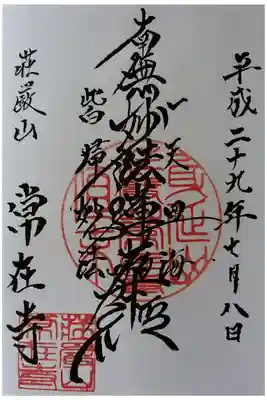 平成二十九年七月八日
一天四海
南無妙法蓮華経
皆帰妙法
荘厳山
常在寺